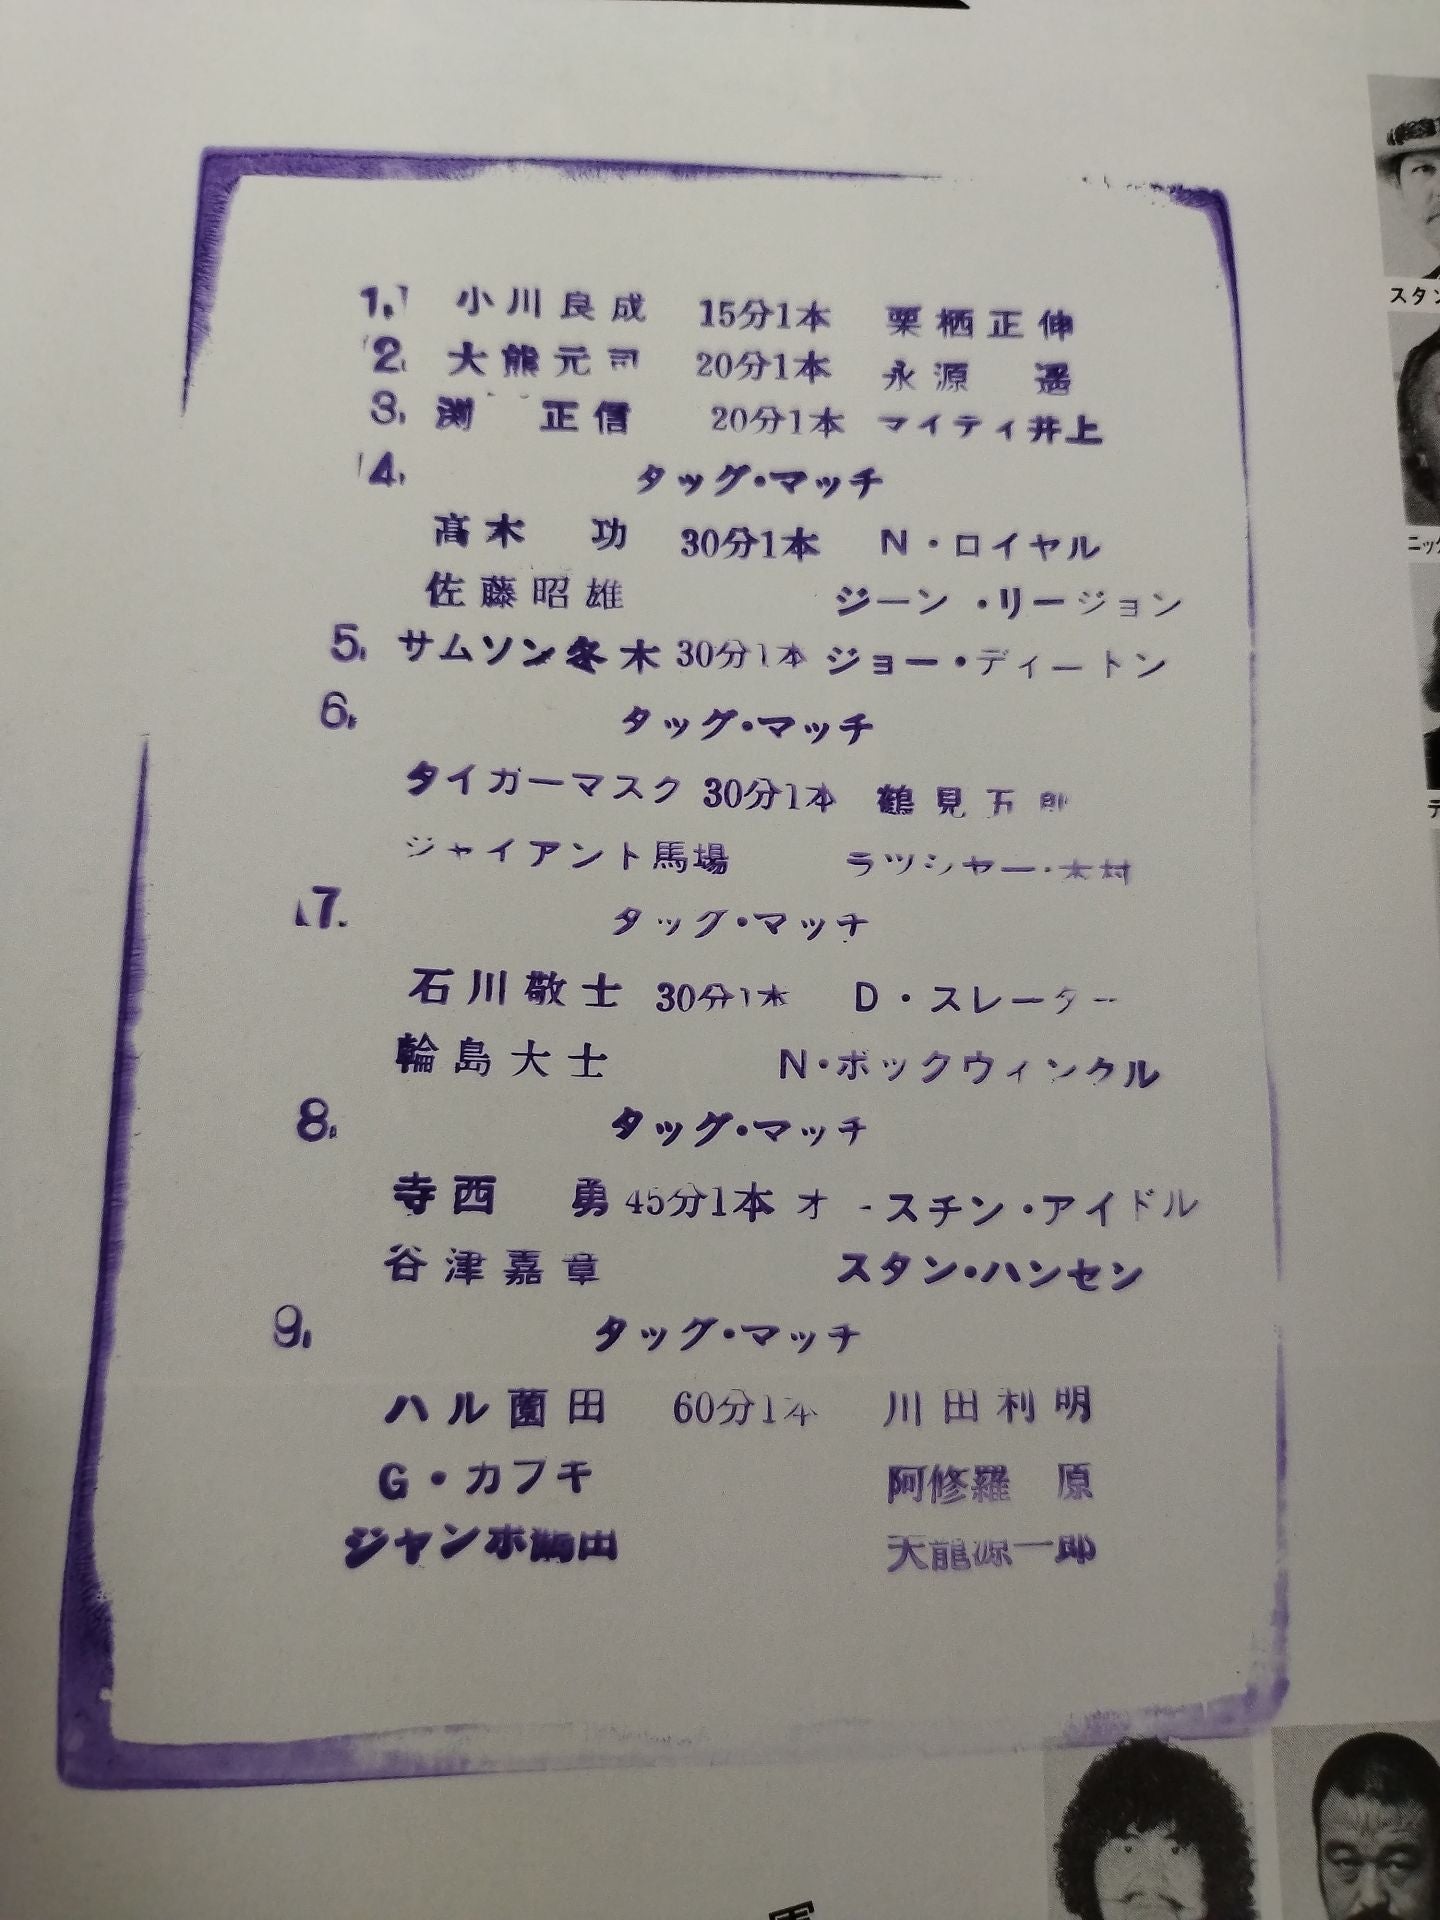 1. 小川良成 15分1本 栗栖正伸
2. 大熊元司 20分1本 永源 遥
3. 渕 正信 20分1本 マイティ井上
4. タッグ・マッチ
高木 功 30分1本 N・ロイヤル
佐藤昭雄 ジーン・リージョン
5. サムソン冬木 30分1本 ジョー・ディートン
6. タッグ・マッチ
タイガーマスク 30分1本 鶴見五郎
ジャイアント馬場 ラッシャー・木村
7. タッグ・マッチ
石川敬士 30分1本 D・スレーター
輪島大士 N・ボックウィンクル
8. タッグ・マッチ
寺西 勇 45分1本 オースチン・アイドル
谷津嘉章 スタン・ハンセン
9. タッグ・マッチ
ハル薗田 60分1本 川田利明
G・カブキ 阿修羅 原
ジャンボ鶴田 天龍源一郎
スタン
ニック